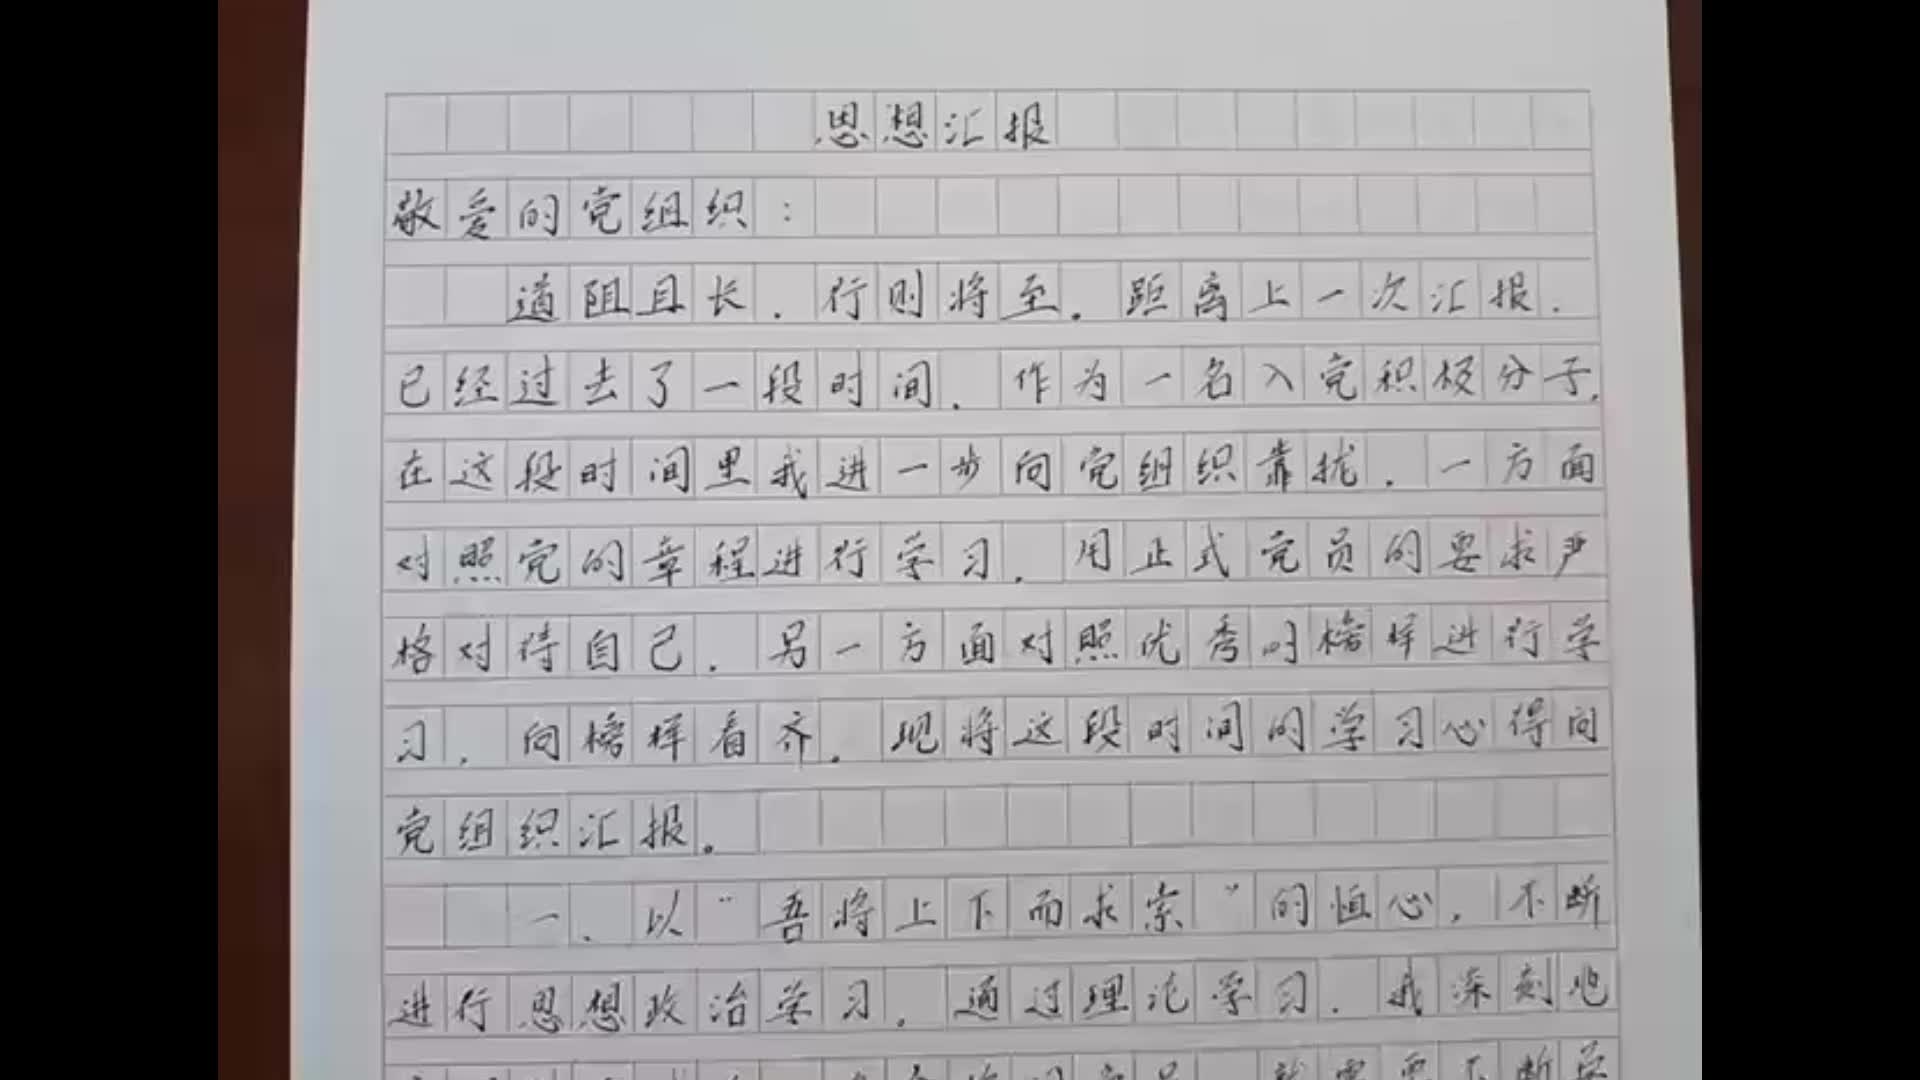 思想汇报
敬爱的党组织：
道阻且长，行则将至。距离上一次汇报，
已经过去了一段时间，作为一名入党积极分子，
在这段时间里我进一步向党组织靠拢，一方面
对照党的章程进行学习，用正式党员的要求严
格对待自己，另一方面对照优秀的榜样进行学
习，向榜样看齐。现将这段时间的学习心得向
党组织汇报。
一、以“吾将上下而求索”的恒心，不断
进行思想政治学习。通过理论学习，我深刻地
就需要不断学